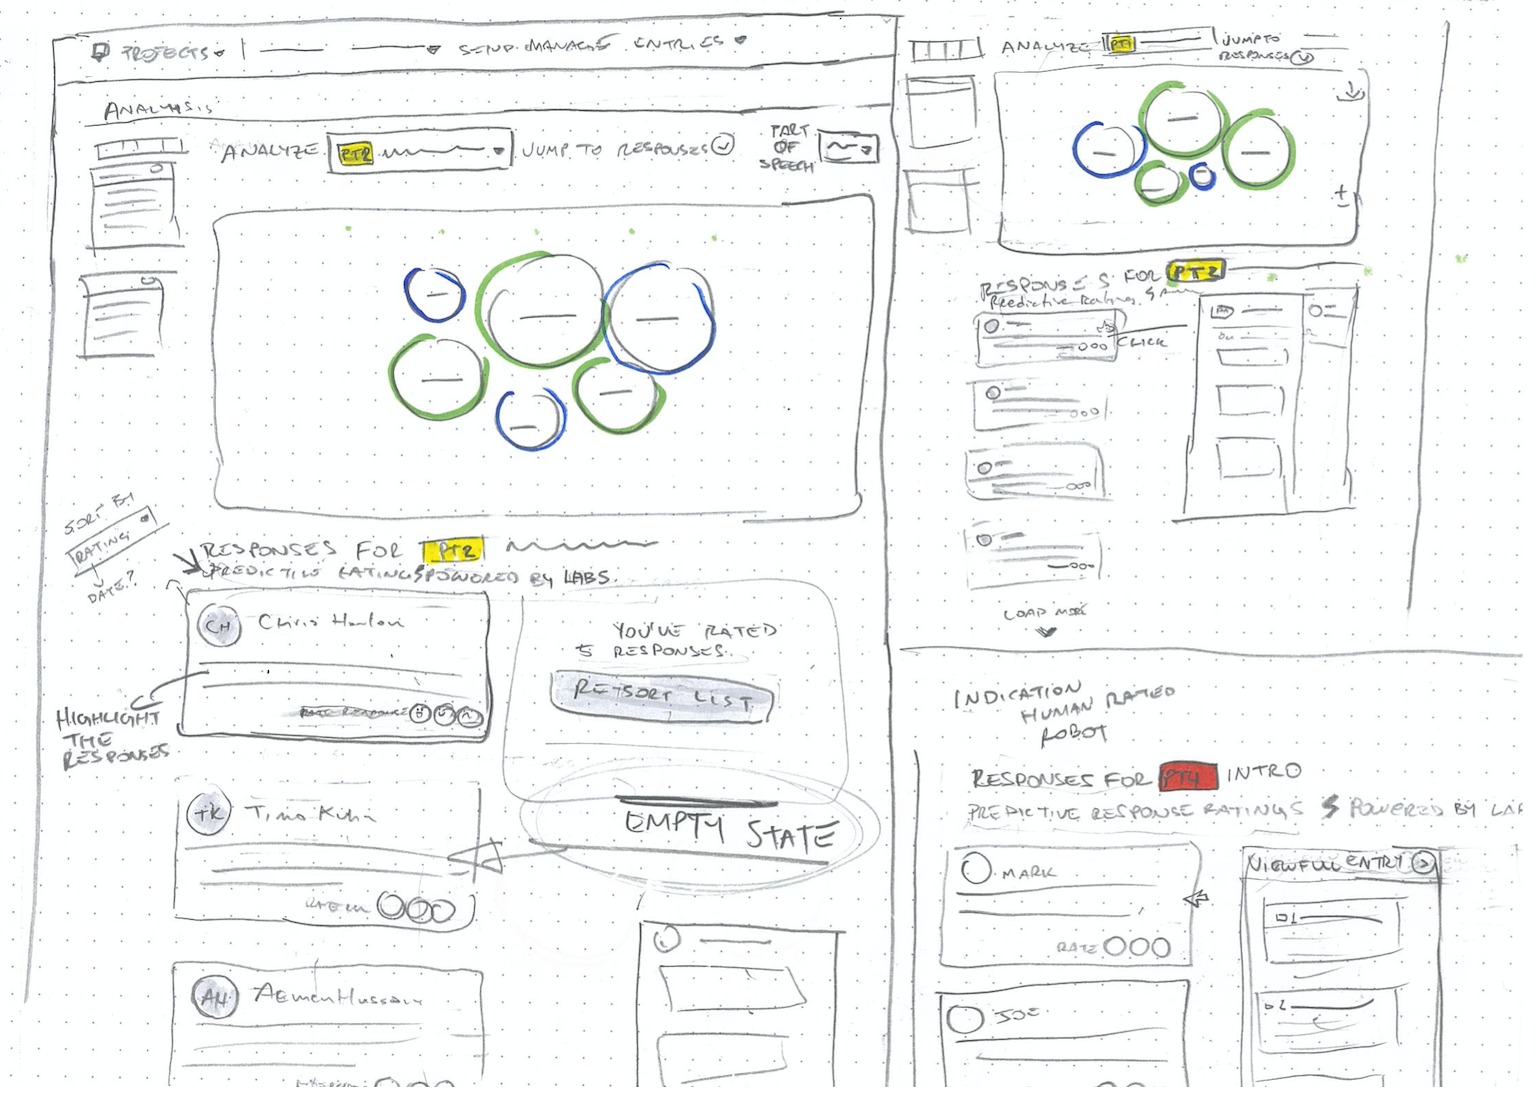 PROJECTS
SEND MANAGE ENTRIES
ANALYSIS
ANALYZE PT2 JUMP TO RESPONSES
PART
OF
SPEECH
SORT BY
RATING
DATE?
RESPONSES FOR PT2
PREDICTIVE RATINGS POWERED BY LABS.
CH
HIGHLIGHT
THE
RESPONSES
YOU'VE RATED
5 RESPONSES.
RE-SORT LIST
TK
EMPTY STATE
RATE
AH Aemen Hussain
ANALYZE PT1 JUMP TO
RESPONSES
RESPONSES FOR PT2
Predictive Ratings
CLICK
LOAD MORE
INDICATION
HUMAN RATED
ROBOT
RESPONSES FOR PT4 INTRO
PREDICTIVE RESPONSE RATINGS POWERED BY LAB
MARK
RATE
JOE
VIEW FULL ENTRY